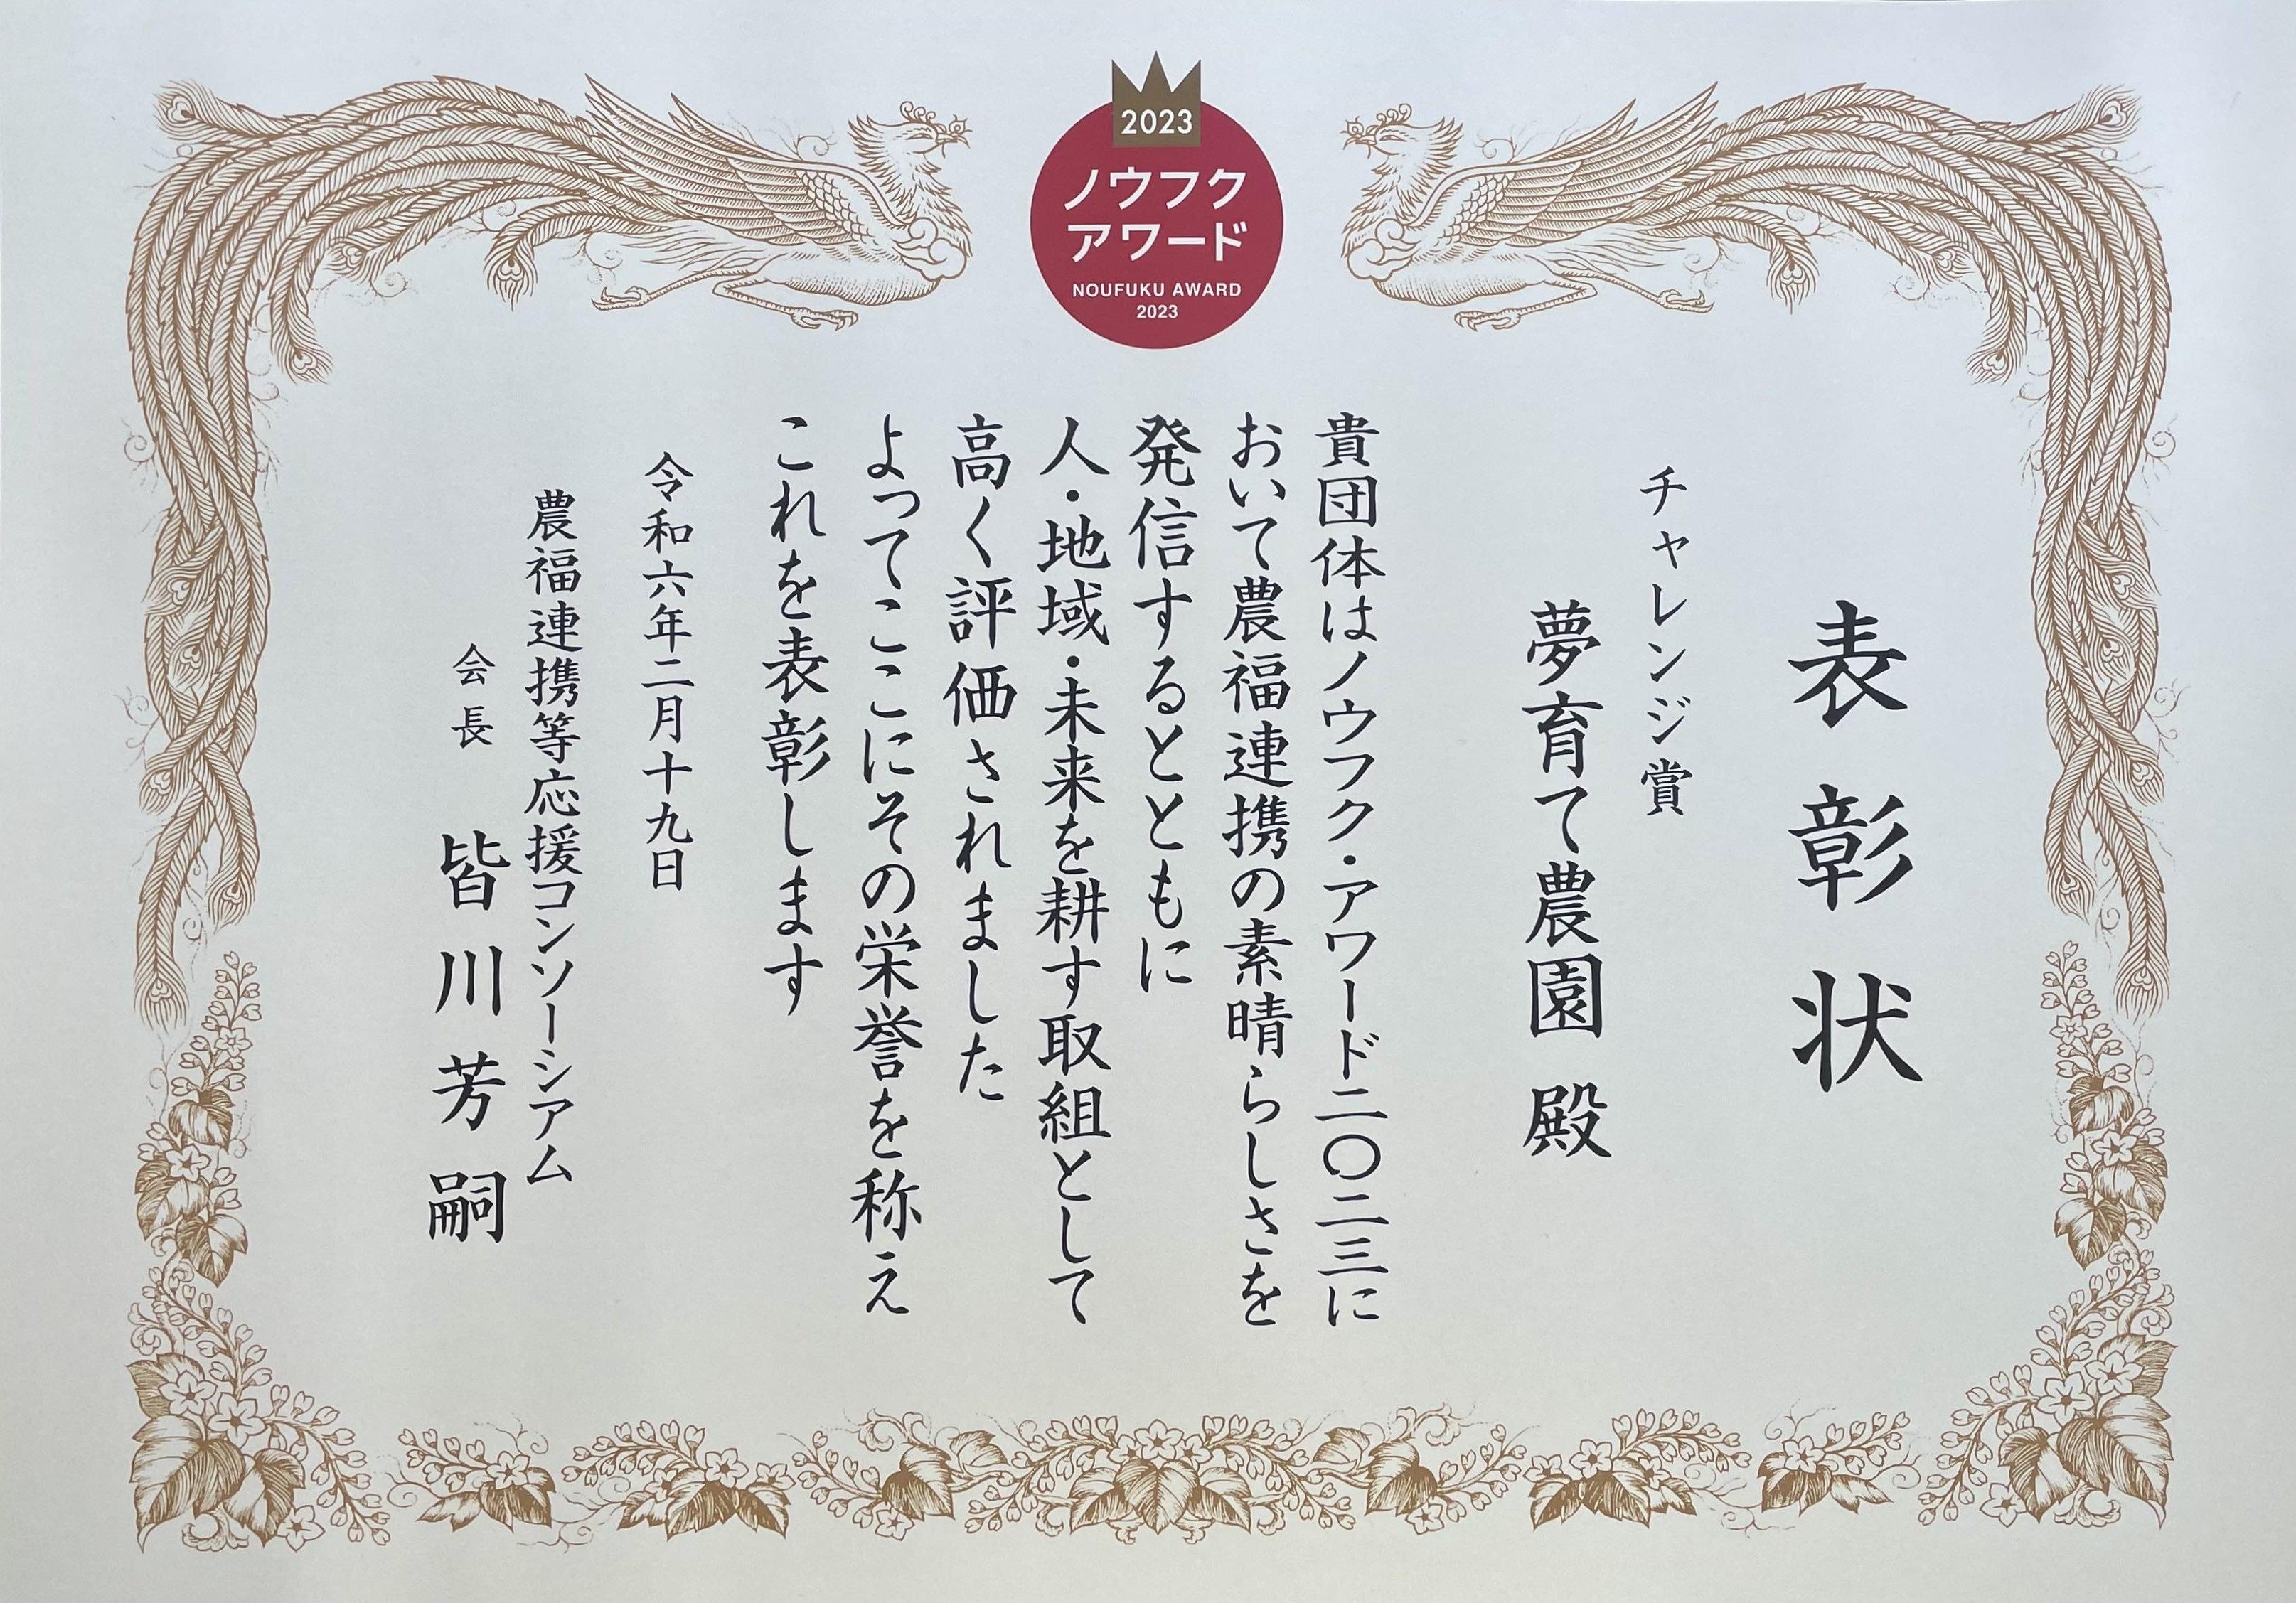 2023
ノウフク
アワード
NOUFUKU AWARD
2023
表彰状
チャレンジ賞
夢育て農園 殿
貴団体はノウフク・アワード二〇二三に
おいて農福連携の素晴らしさを
発信するとともに
人・地域・未来を耕す取組として
高く評価されました
よってここにその栄誉を称え
これを表彰します
令和六年二月十九日
農福連携等応援コンソーシアム
会長 皆川芳嗣